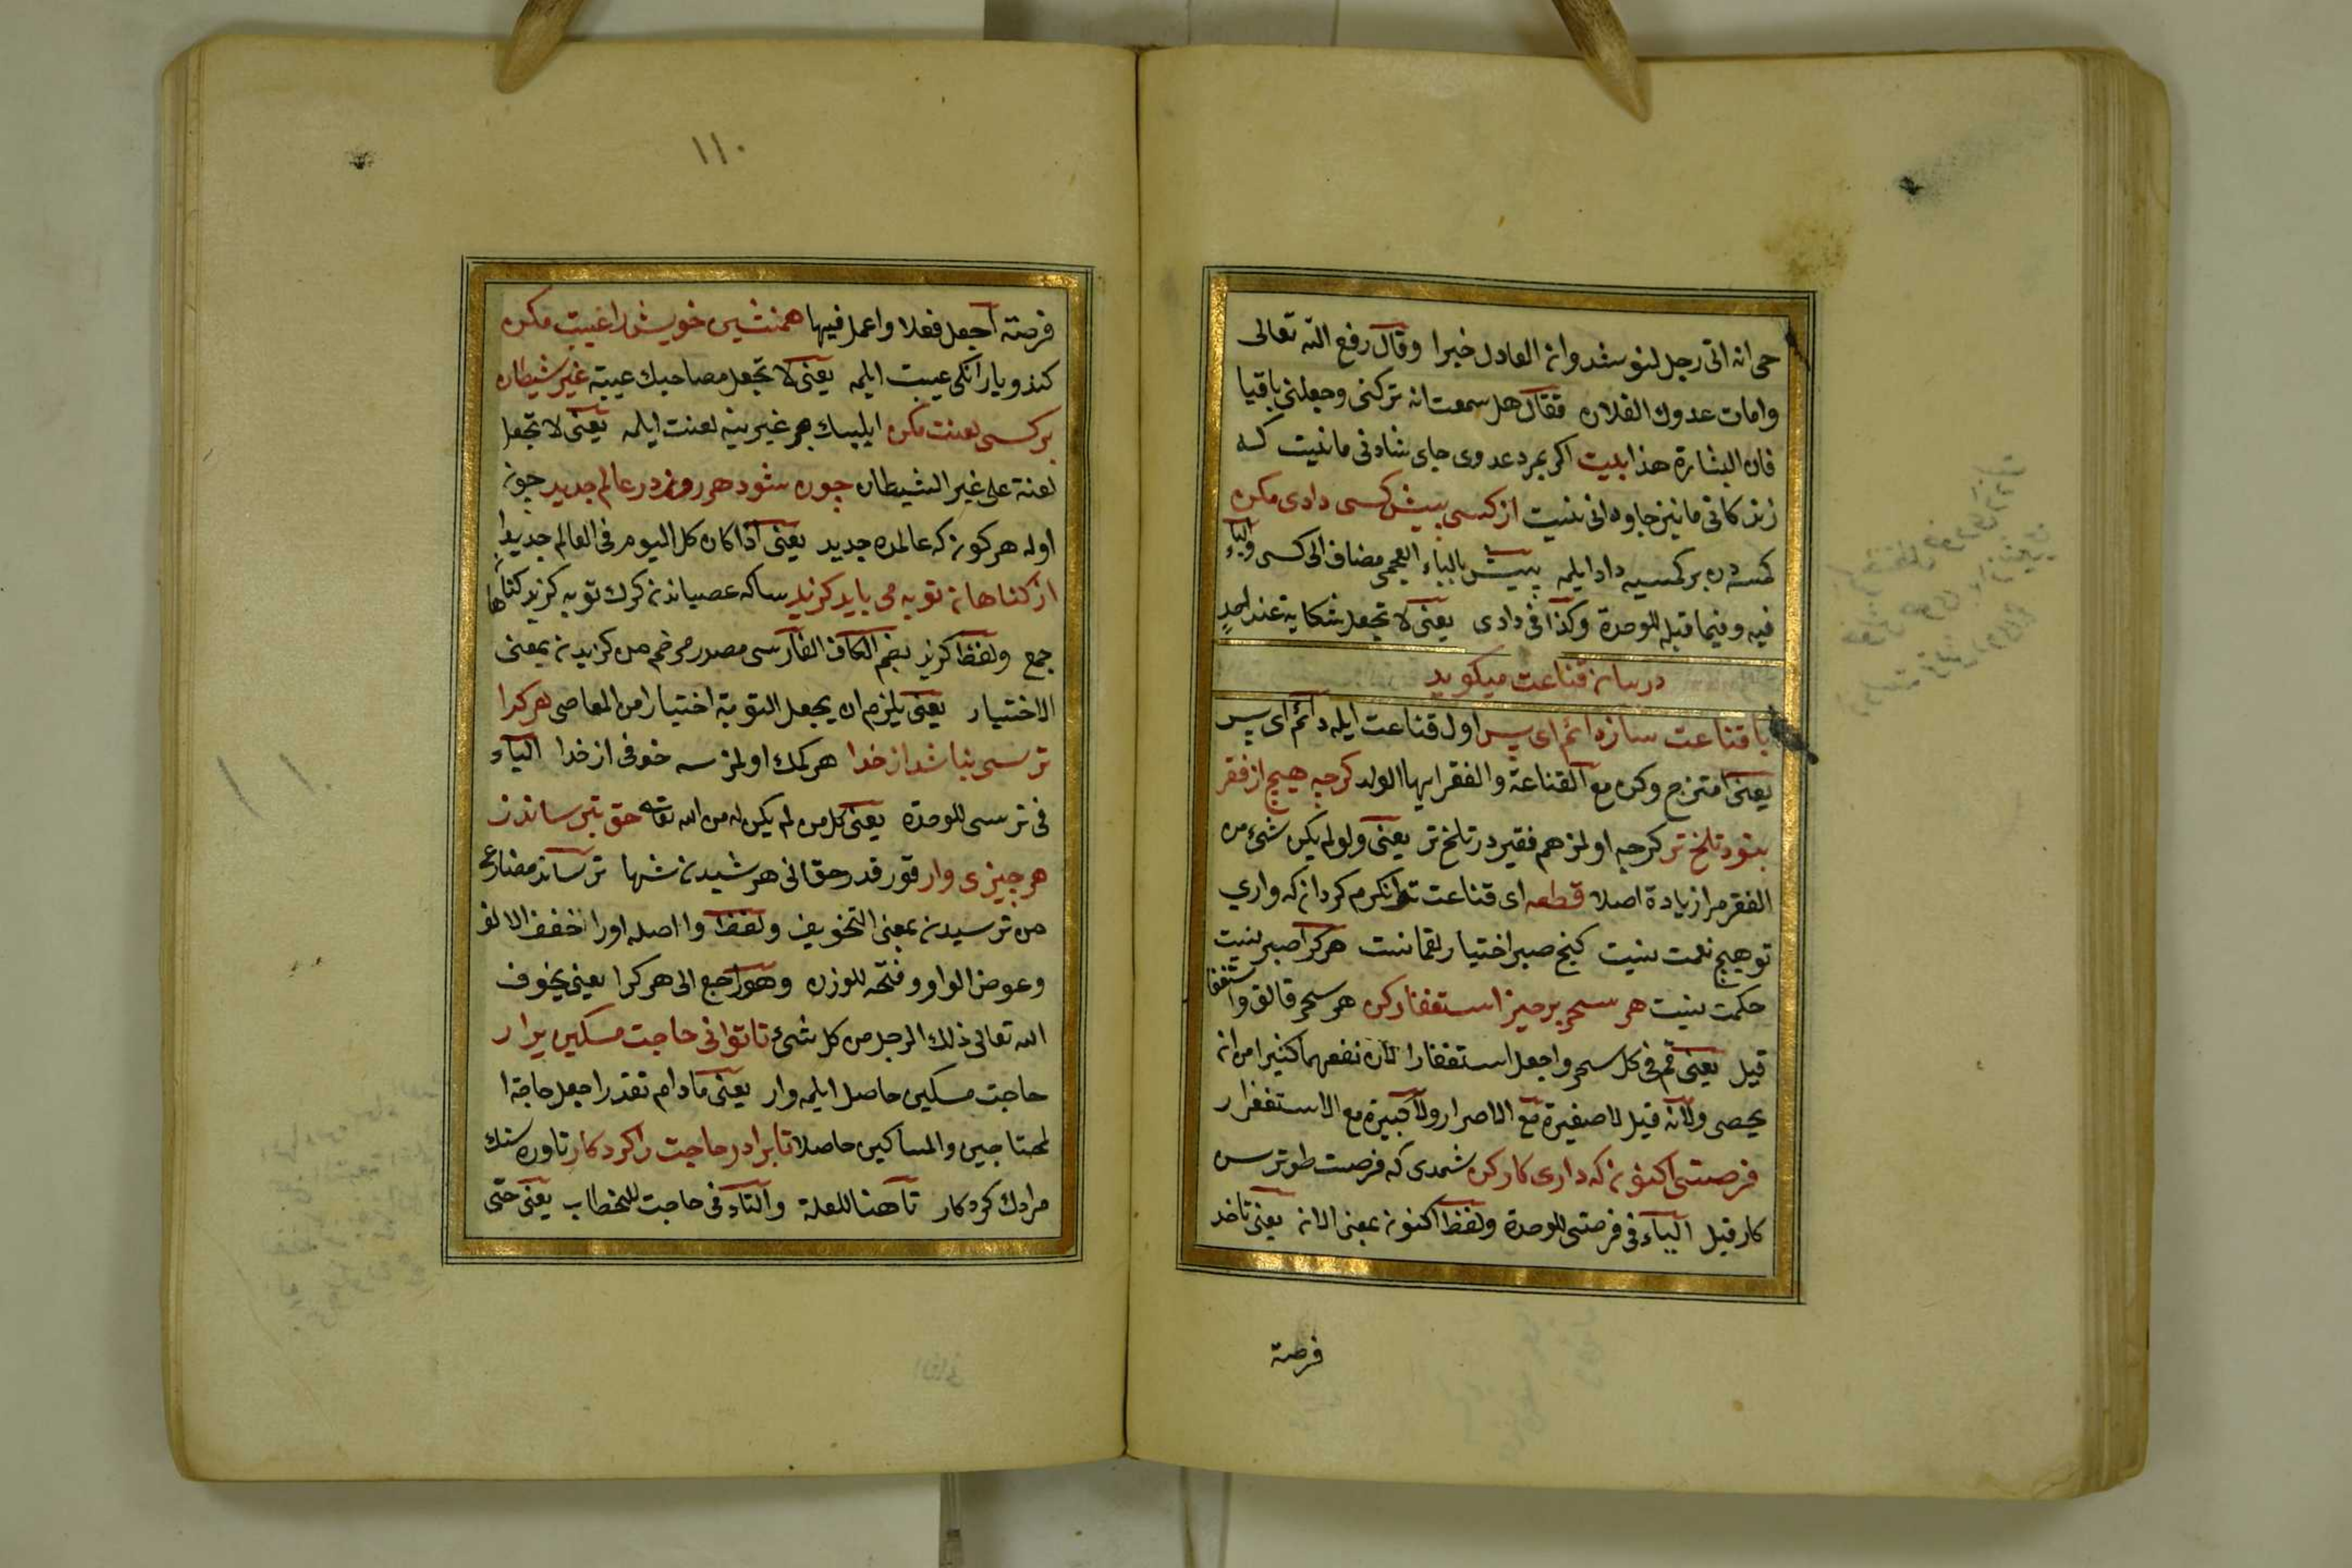 حى انه اتى رجل لنوشروان العادل خيرا وقال رفع الله تعالى
وامات عدوك الفلان فقال هل سمعت انه تركنى وجعلنى باقيا
فان البشارة هذا بيت اكر بمرد عدوى جاى شادنى مانيت كه
زندكانى مانيز جاودانى نيست از كسى پيش كسى دادى مكن
كمسه دن بر كمسيه داد ايلمه پيش بالباء العجمى مضاف الى كسى والياء
فيه وفيما قبله للوحدة وكذا فى دادى يعنى لا تجعل شكاية عند احد
در بيان قناعت ميكويد
با قناعت ساز دائم اى پسر اول قناعت ايله دائم اى پسر
يعنى امتزج وكن مع القناعة والفقر ايها الولد كرچه هيچ از فقر
بنود تلخ تر كرچه اولمز هم فقيردر تلخ تر يعنى ولو لم يكن شئ من
الفقر مرا زيادة اصلا قطعه اى قناعت توانكرم كردان كه وراى
تو هيچ نعمت نيست كنج صبر اختيار لقمانست هر كرا صبر نيست
حكمت نيست هر سحر برخيز استغفار كن هر سحر قالق واستغفا
قيل يعنى قم فى كل سحر واجعل استغفارا لان نفعهما كثيرا من ان
يحصى ولانه قيل لا صغيرة مع الاصرار ولا كبيرة مع الاستغفار
فرصتى اكنون كه دارى كار كن شمدى كه فرصت طوترسن
كار قيل الياء فى فرصتى للوحدة ولفظ اكنون بمعنى الان يعنى تاخذ
فرصة
١١٠
فرصة اجعل فعلا واعمل فيها همنشين خويش را غيبت مكن
كندو يارانكى عيبت ايلمه يعنى لا تجعل مصاحبك عيبة غير شيطان
بر كسى لعنت مكن ابليسك هم غيرينه لعنت ايلمه يعنى لا تجعل
لعنة على غير الشيطان چون شود هر روز در عالم جديد چون
اوله هر كون كه عالمده جديد يعنى اذا كان كل اليوم فى العالم جديدا
از كناهان توبه مى بايد كزيد ساكه عصياندن كرك توبه كزيد كناها
جمع ولفظ كزيد بضم الكاف الفارسى مصدر مرخم من كزيدن بمعنى
الاختيار يعنى يلزم ان يجعل التوبة اختيارا من المعاصى هر كرا
ترسى نباشد از خدا هر كمك اولمز سه خوفى از خدا الياء
فى ترسى للوحدة يعنى كل من لم يكن له من الله تعالى حق بترساندز
هر چيزى وار قورقدر حق انى هر شيدن شها ترساند مضارع
من ترسيدن بمعنى التخويف ولفظ وا اصله اورا خفف الالف
وعوض الواو وفتحه للوزن وهو راجع الى هر كرا يعنى يخوف
الله تعالى ذلك الرجل من كل شئ تا توانى حاجت مسكين برار
حاجت مسكين حاصل ايلمه وار يعنى مادام تقدر اجعل حاجة ا
لمحتاجين والمساكين حاصلا تا برادر حاجت را كرد كار تا ورسنك
مرادك كردكار تا هنا للعلة والتاء فى حاجت للخطاب يعنى حتى